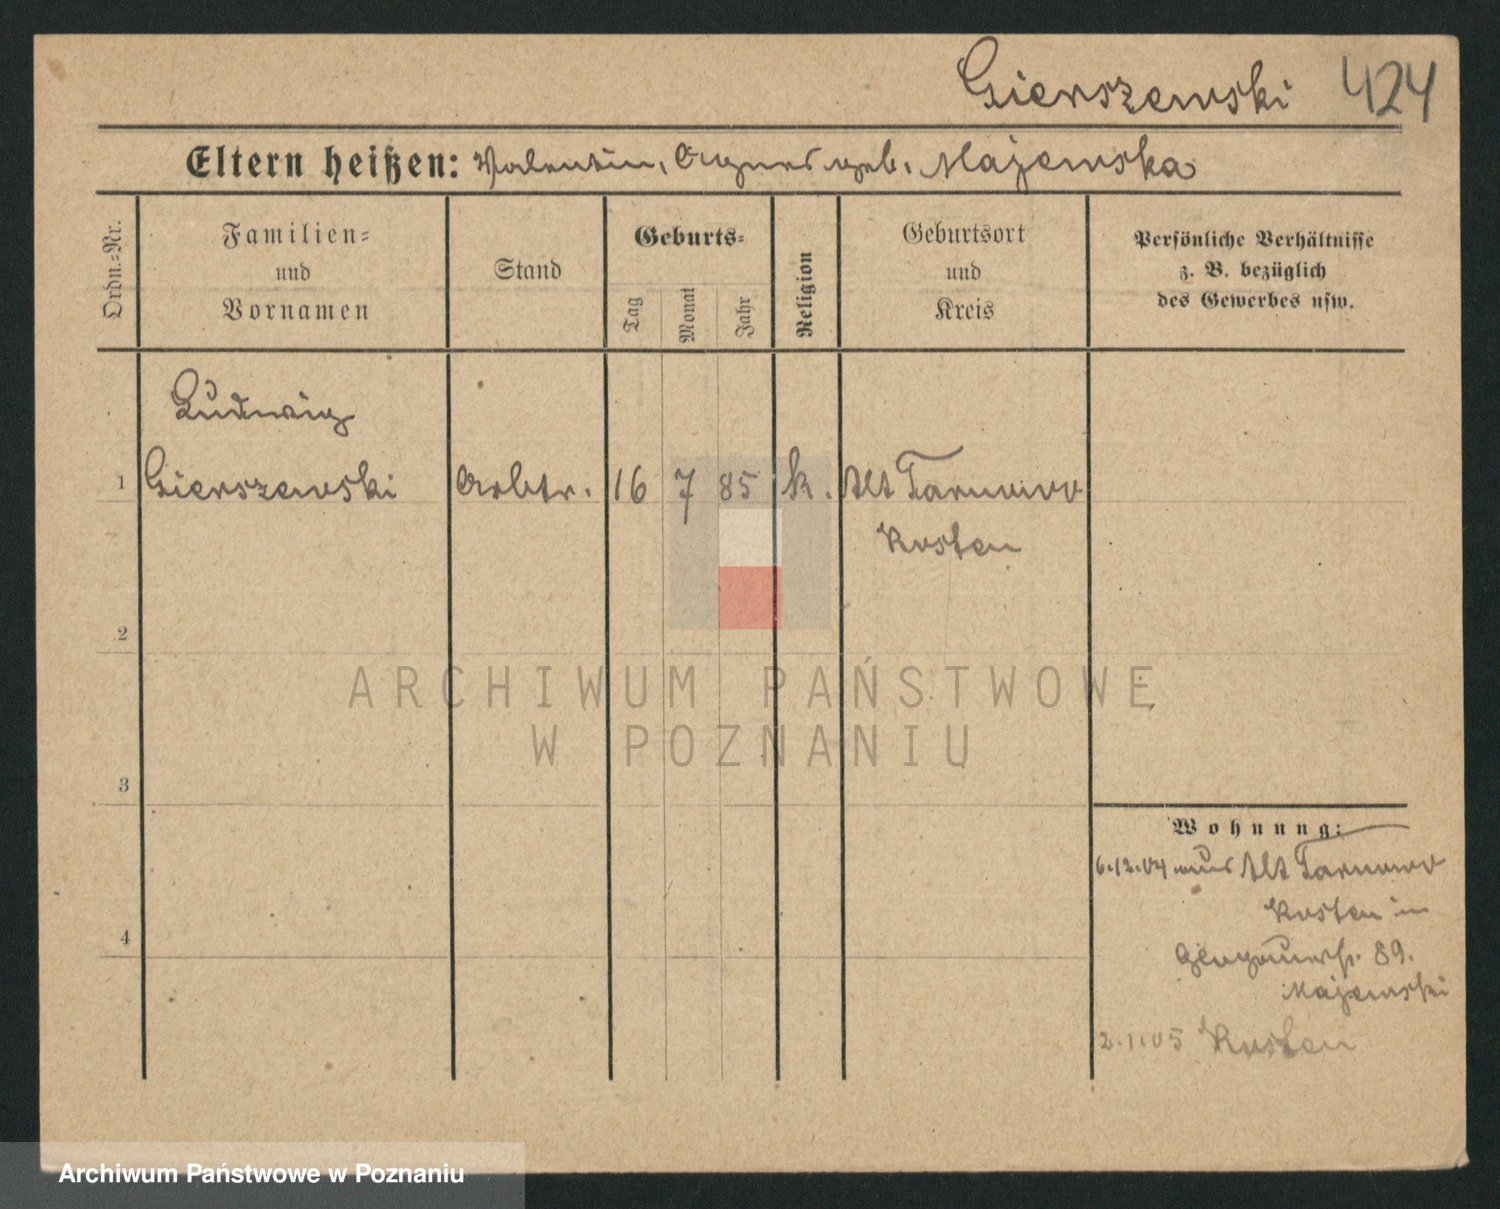 Gierszewski 424
Eltern heißen: Valentin, Agnes geb. Majewska
Ordn.=Nr.
Familien=
und
Vornamen
Stand
Geburts=
Tag
Monat
Jahr
Religion
Geburtsort
und
Kreis
Persönliche Verhältnisse
z. B. bezüglich
des Gewerbes usw.
Ludwig
1 Gierszewski Arbtr. 16 7 85 k. Alt Tarnowo
Kosten
2
ARCHIWUM PAŃSTWOWE
W POZNANIU
3
Wohnung:
6.12.04 aus Alt Tarnowo
Kosten in
Glogauerstr. 89.
Majewski
4
2.1.05 Kosten
Archiwum Państwowe w Poznaniu